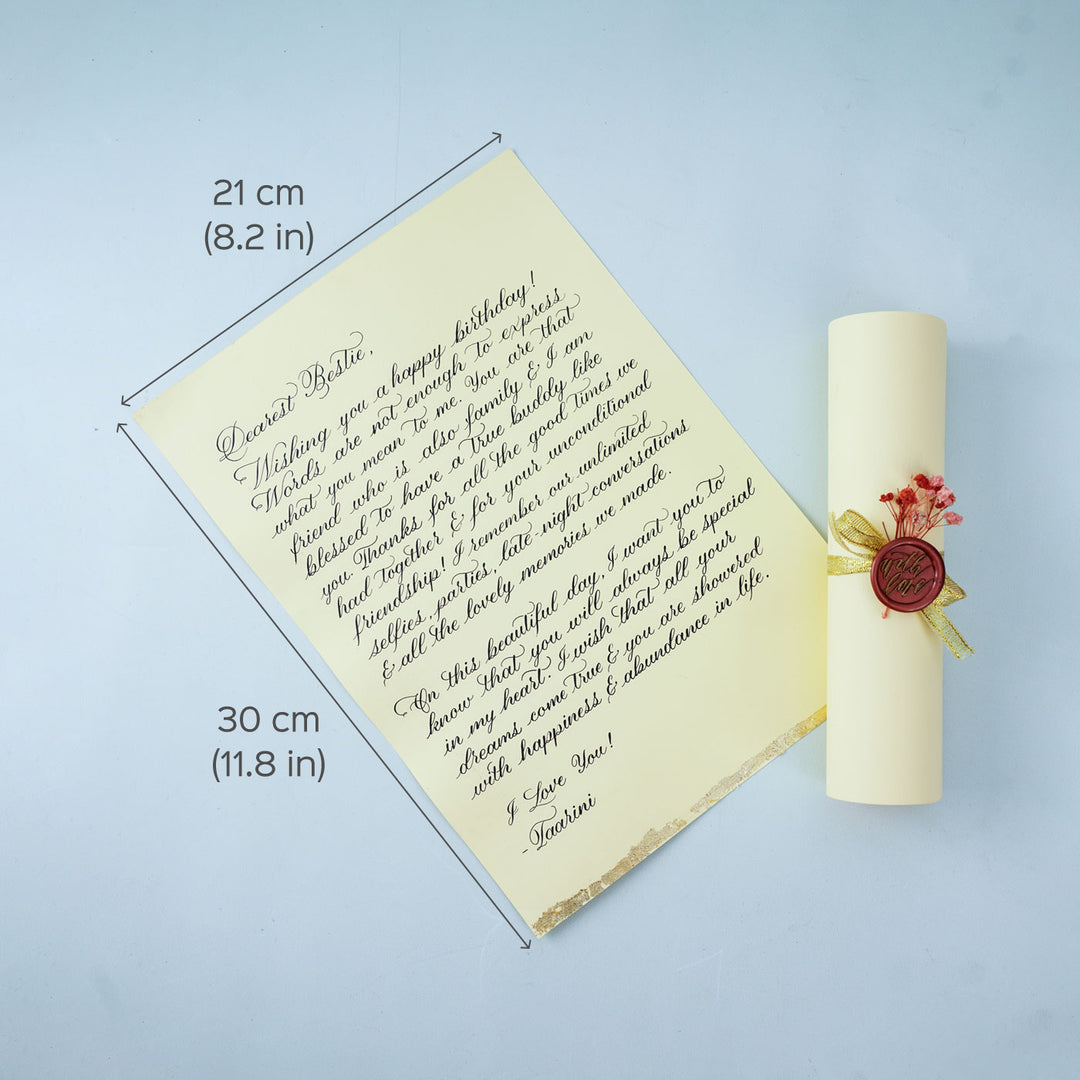 21 cm
(8.2 in)
30 cm
(11.8 in)
Dearest Bestie,
Wishing you a happy birthday!
Words are not enough to express
what you mean to me. You are that
friend who is also family & I am
blessed to have a true buddy like
you. Thanks for all the good times we
had together & for your unconditional
friendship! I remember our unlimited
selfies, parties, late-night conversations
& all the lovely memories we made.
On this beautiful day, I want you to
know that you will always be special
in my heart. I wish that all your
dreams come true & you are showered
with happiness & abundance in life.
I Love You!
-Taarini
with
love